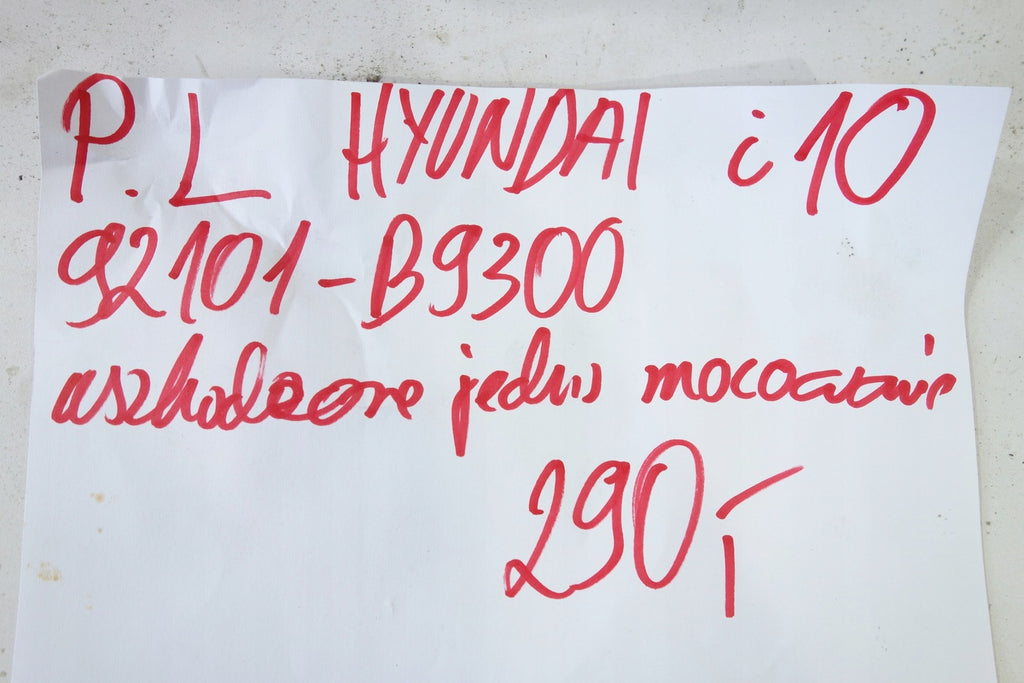 P.L HYUNDAI i10
92101-B9300
uszkodzone jedno mocowanie
290,-